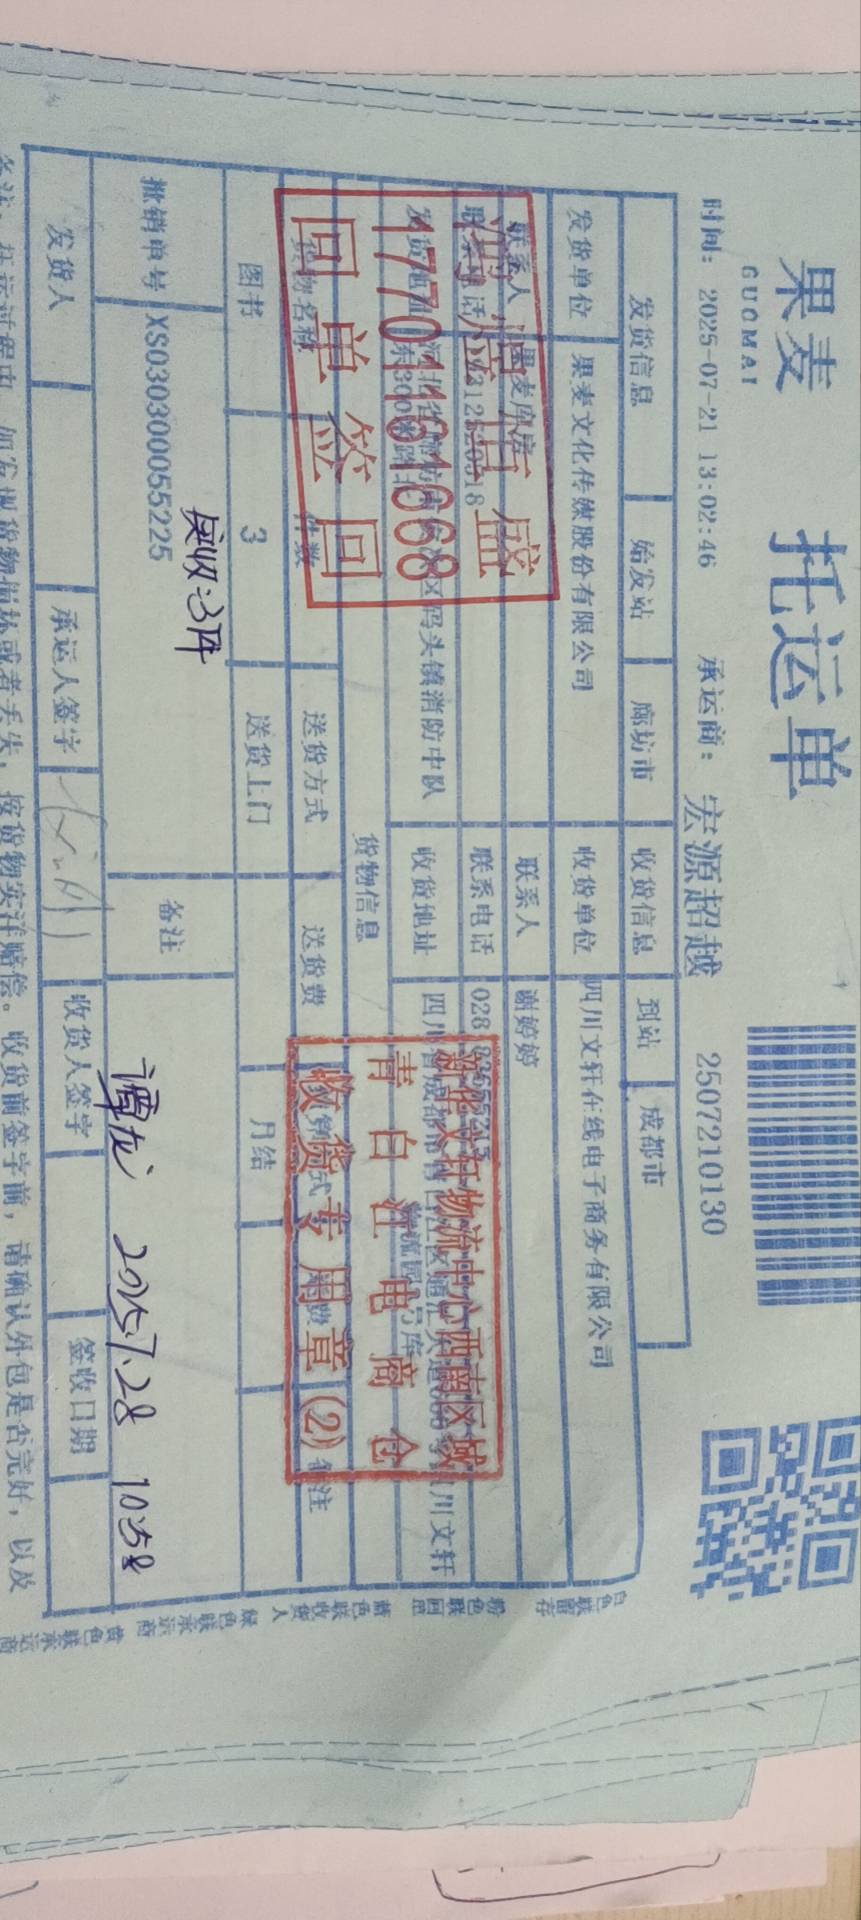 果麦
GUOMAI
托运单
2507210130
时间: 2025-07-21 13:02:46 承运商: 宏源超越
发货信息 始发站 廊坊市 收货信息 到站 成都市
发货单位 果麦文化传媒股份有限公司 收货单位 四川文轩在线电子商务有限公司
联系人 果麦库房 联系人 谢婷婷
联系电话 联系电话 028
发货地址 码头镇消防中队 收货地址 四川
东300米路北
四川文轩
货物信息
货物名称 件数 送货方式 送货费 备注
图书 3 送货上门 月结
实收:3件
撤销单号 XS030300055225 备注
谭龙 2025.7.28 10:58
发货人 承运人签字 收货人签字 签收日期
备注: 托运过程中, 如发现货物损坏或者丢失, 按货物实洋赔偿。收货前签字前, 请确认外包是否完好, 以及
17701161668
回单签回
新华文轩物流中心西南区域
青白江电商仓
收货专用章(2)
白色联留存
粉色联回单
蓝色联收货人
绿色联承运商
黄色联承运商